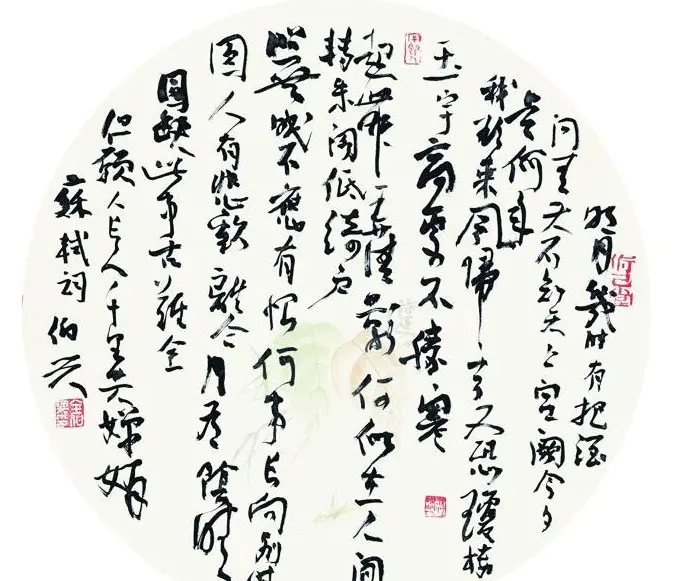 明月幾时有把酒
问青天不知天上宫阙今夕
是何年
我欲乘风归去又恐琼楼
玉宇高处不胜寒
起舞弄清影何似在人间
转朱阁低绮户
照無眠不应有恨何事长向别时
圆人有悲欢离合月有阴晴
圆缺此事古难全
但愿人长久千里共婵娟
蘇轼词 伯兴